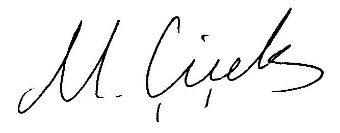 M. Çiçek